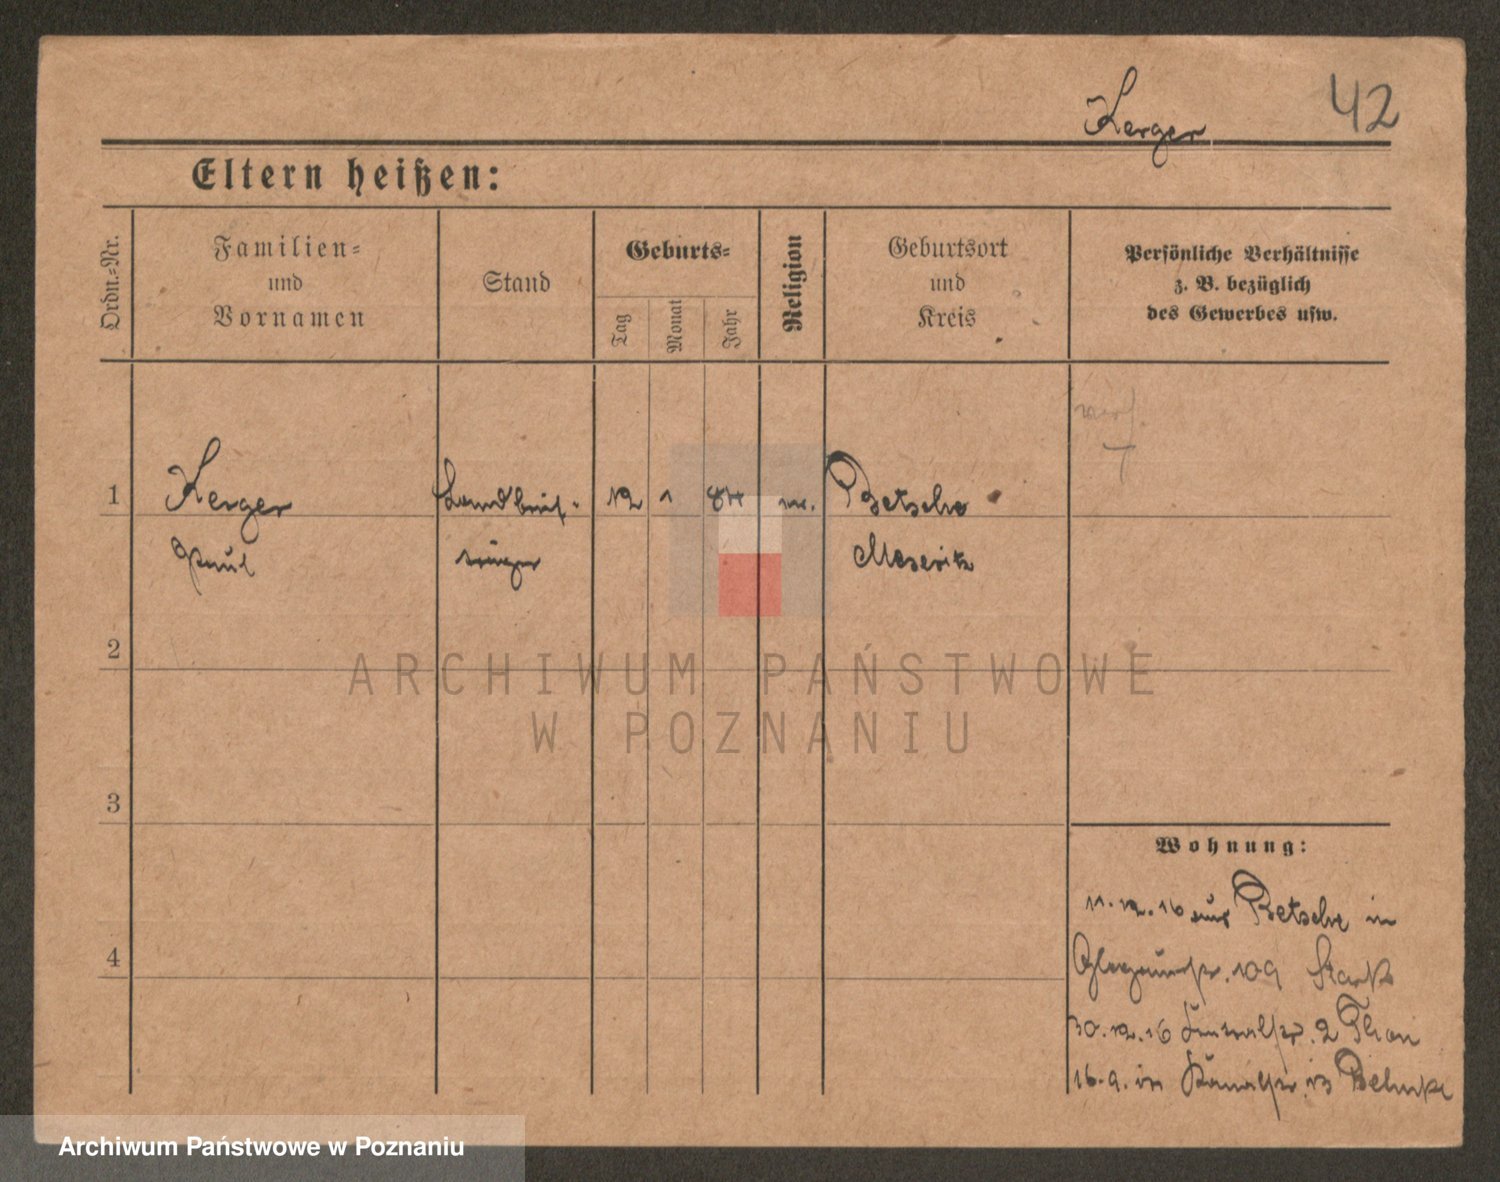 Kerger 42
Eltern heißen:
Ordn.-Nr.
Familien-
und
Vornamen
Stand
Geburts-
Tag
Monat
Jahr
Religion
Geburtsort
und
Kreis
Persönliche Verhältnisse
z. B. bezüglich
des Gewerbes usw.
1 Kerger Landbrief- 12 1 84 Betsche
Paul träger Meseritz
2
3
4
ARCHIWUM PAŃSTWOWE
W POZNANIU
Wohnung:
11.12.16 aus Betsche in
Glogauerstr. 109
30.12.16 2
16.9. in Kanalstr. 13
Archiwum Państwowe w Poznaniu